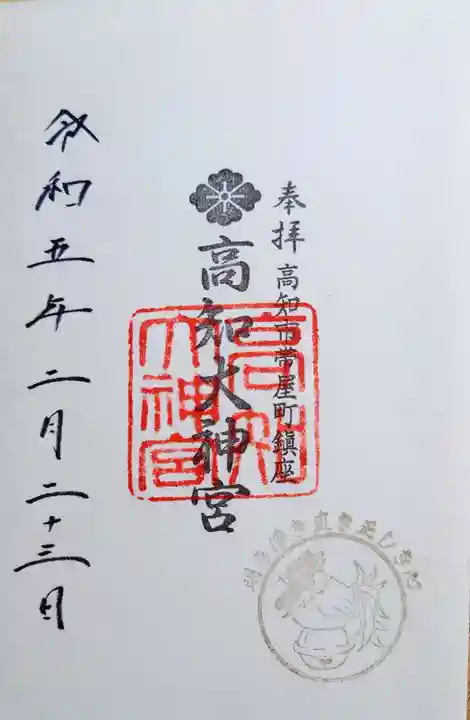 奉拝 高知市帯屋町鎮座
高知大神宮
高知大神宮
令和五年二月二十三日